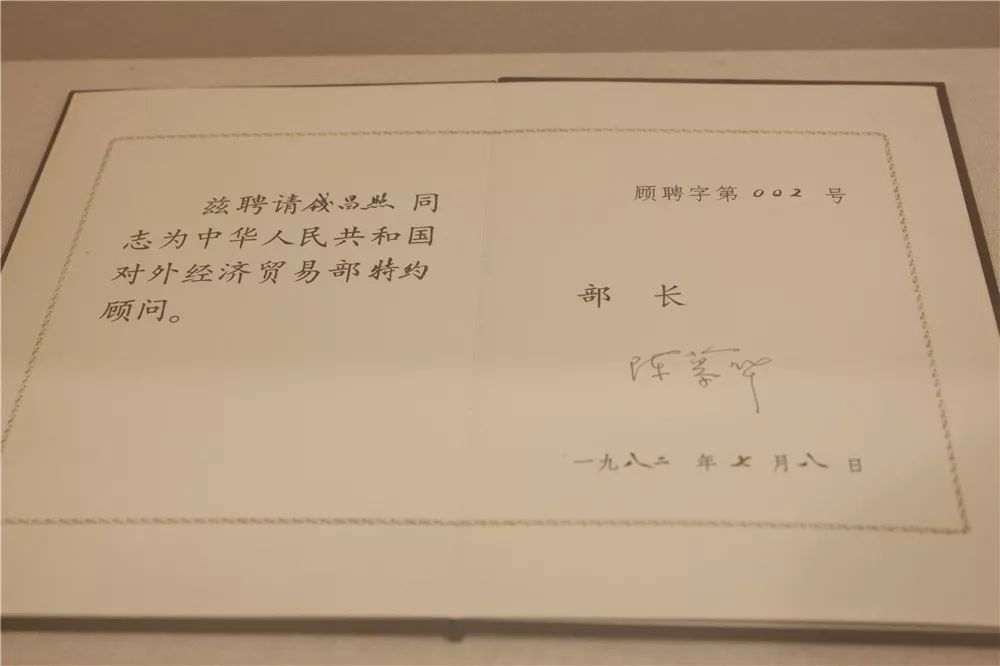 兹聘请钱昌照同
志为中华人民共和国
对外经济贸易部特约
顾问。
顾聘字第002号
部 长
陈慕华
一九八二年七月八日